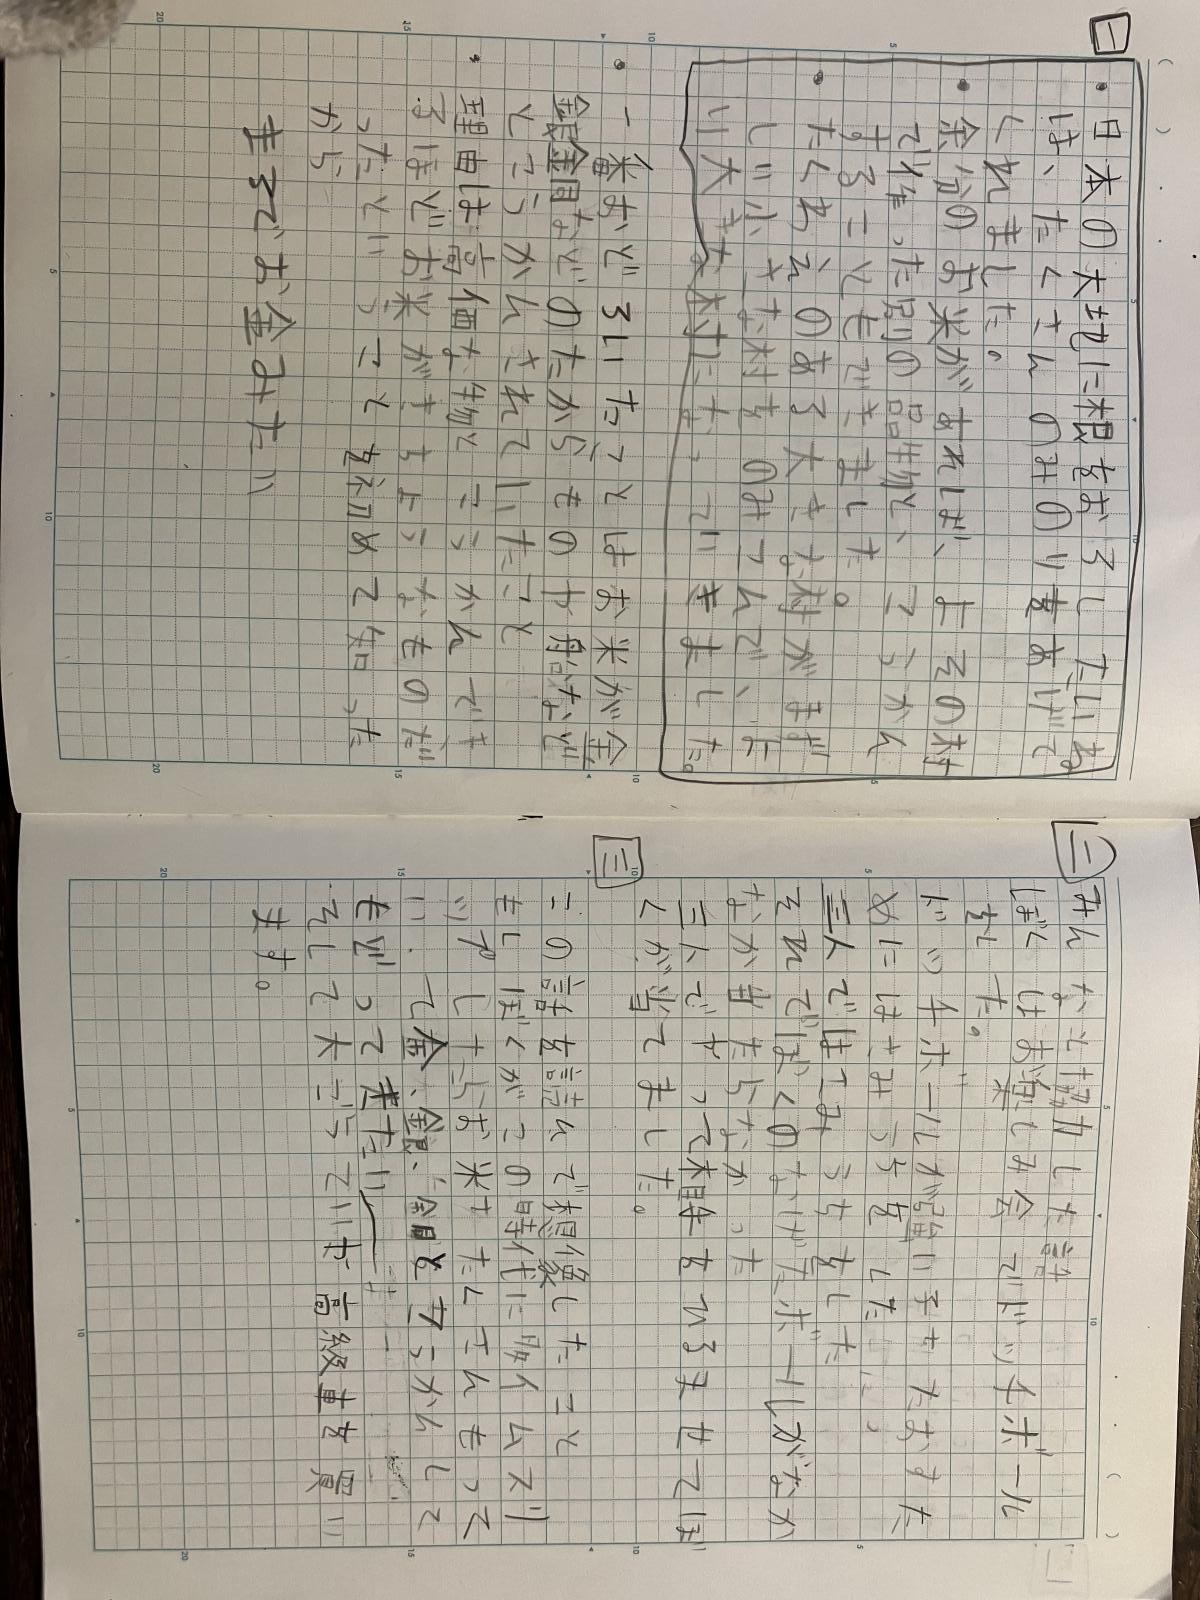 一
・日本の大地に根をおろしたいね
は、たくさんのみのりをあげて
くれました。
・余分のお米があれば、よその村
で作った別の品物と、こうかん
することもできました。
・たくわえのある大きな村がまず
しい小さな村をのみこんで、よ
り大きな村になっていきました。
・一番おどろいたことはお米が金
銀銅などのたからものや船など
とこうかんされていたこと
・理由は高価な物とこうかんでき
るほどお米がきちょうなものだ
ったということを初めて知った
から
まるでお金みたい
二
みんなと協力した話
ぼくはお楽しみ会でドッチボール
をした。
ドッチボールが強い子をたおすた
めにはさみうちをした。
三人ではさみうちをした
それでぼくのなげたボールがなか
なか当たらなかった
三人でやって相手をひるませてぼ
くが当てました。
三
この話を読んで想像したこと
もしぼくがこの時代にタイムスリ
ップしたらお米をたくさんもって
いって金、銀、銅とこうかんして
もどって来たい
そして大ごうていや高級車を買い
ます。